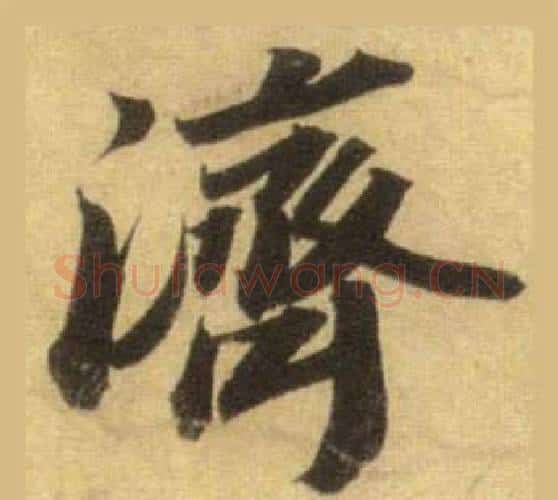 濟
Shufawang.CN